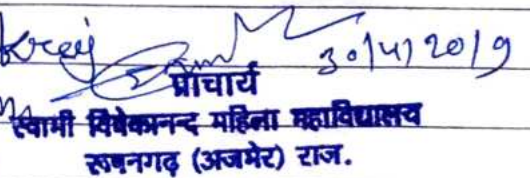 30/4/2019
प्राचार्य
स्वामी विवेकानन्द महिला महाविद्यालय
रूपनगढ़ (अजमेर) राज.